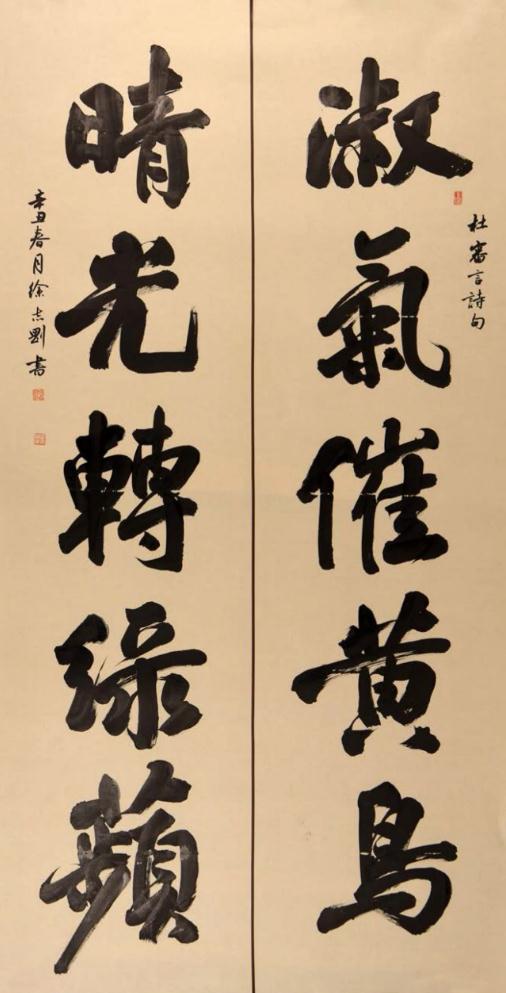 杜審言詩句
淑氣催黄鸟
晴光轉绿蘋
辛丑春月徐志剛書